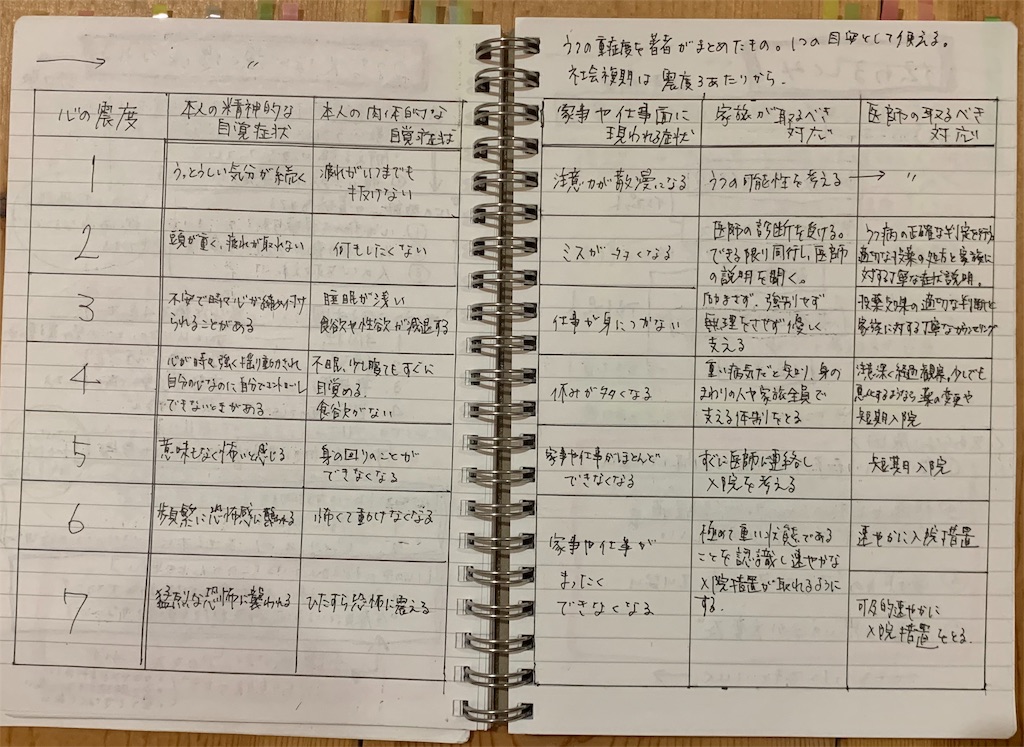 → 〃
うつの重症度を著者がまとめたもの。1つの目安として使える。
社会復期は震度3あたりから。
心の震度
本人の精神的な
自覚症状
本人の肉体的な
自覚症状
家事や仕事面に
現われる症状
家族が取るべき
対応
医師の取るべき
対応
1
うっとうしい気分が続く
疲れがいつまでも
抜けない
注意力が散漫になる
うつの可能性を考える
→ 〃
2
頭が重く、疲れが取れない
何もしたくない
ミスが多くなる
医師の診断を受ける。
できる限り同行し、医師
の説明を聞く。
うつ病の正確な判定を行い
適切な投薬の処方と家族に
対する丁寧な症状説明。
3
不安で時々心が締め付け
られることがある
睡眠が浅い
食欲や性欲が減退する
仕事が身につかない
励まさず、強制せず
無理をさせず優しく
支える
投薬効果の適切な判断と
家族に対する丁寧なカウンセリング
4
心が時々強く揺り動かされ
自分の心なのに自分でコントロール
できないときがある
不眠、少し寝てもすぐに
目覚める。
食欲がない
休みが多くなる
重い病気だと気づき、身の
まわりの人や家族全員で
支える体制をとる
注意深く経過観察、少しでも
悪化するようなら薬の変更や
短期入院
5
意味もなく怖いと感じる
身の回りのことが
できなくなる
家事や仕事がほとんど
できなくなる
すぐに医師に連絡し
入院を考える
短期入院
6
頻繁に恐怖感に襲われる
怖くて動けなくなる
家事や仕事が
まったく
できなくなる
極めて重い状態である
ことを認識し速やかな
入院措置が取れるように
する。
速やかに入院措置
7
猛烈な恐怖に襲われる
ひたすら恐怖に震える
可及的速やかに
入院措置をとる。